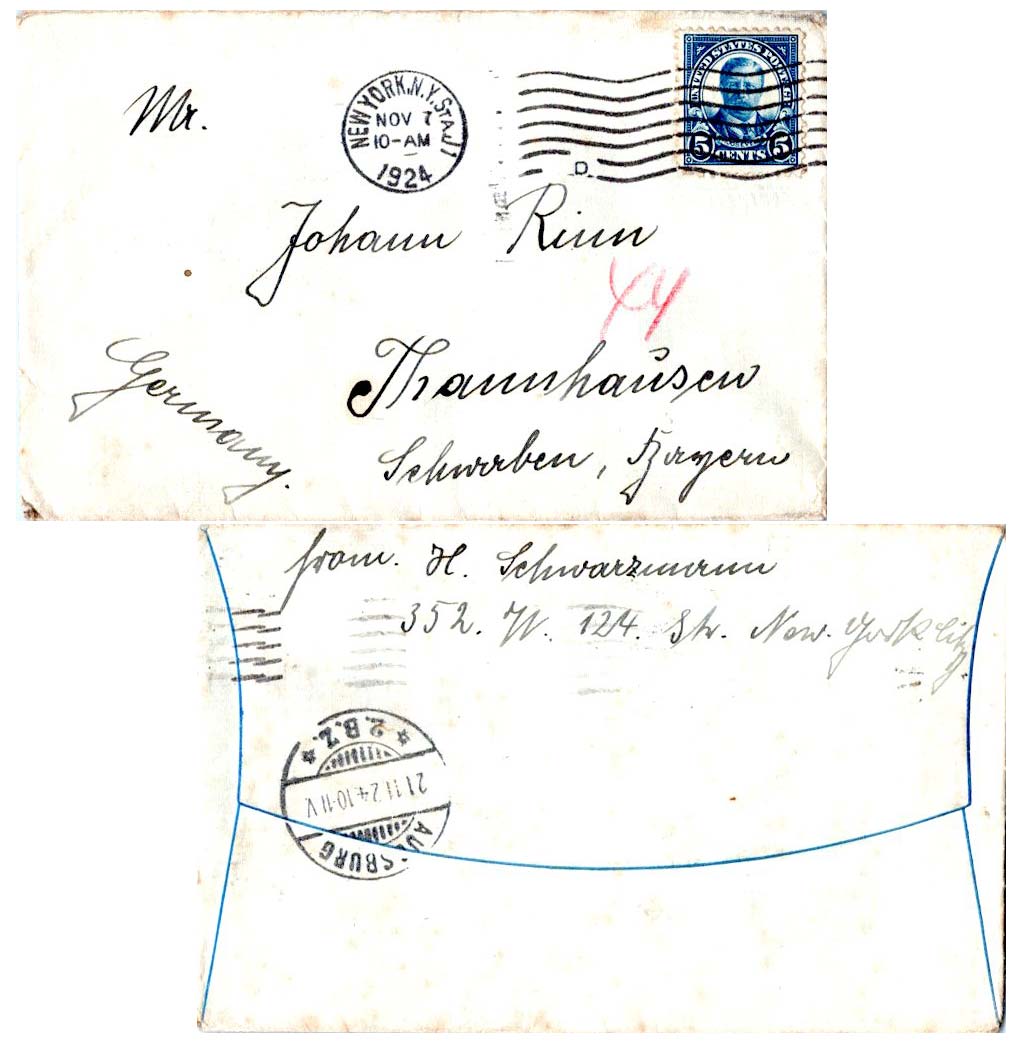 Mr.
NEW YORK, N.Y. STA. J
NOV 7
10-AM
1924
UNITED STATES POSTAGE
5 CENTS 5
D
Johann Rinn
Germany.
Thannhausen
Schwaben, Bayern
from. H. Schwarzmann
352. W. 124. Str. New. York City.
* 2.B.Z. *
21.11.24.10-11V.
AUGSBURG